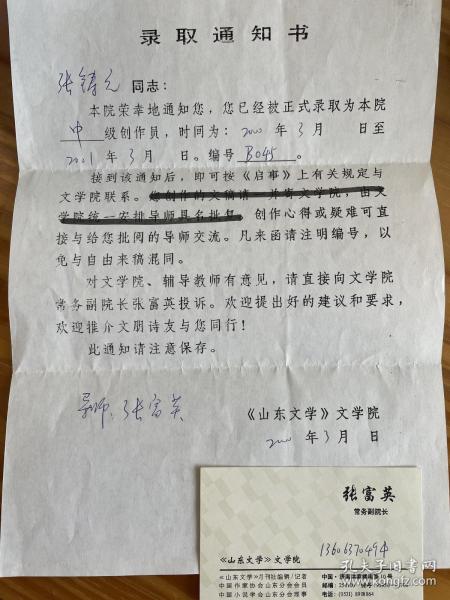 录取通知书
张铸之 同志：
本院荣幸地通知您，您已经被正式录取为本院
中 级创作员，时间为：2000 年 3 月 日至
2001 年 3 月 日。编号 B045 。
接到该通知后，即可按《启事》上有关规定与
文学院联系。
创作心得或疑难可直
接与给您批阅的导师交流。凡来函请注明编号，以
免与自由来稿混同。
对文学院、辅导教师有意见，请直接向文学院
常务副院长张富英投诉。欢迎提出好的建议和要求，
欢迎推介文朋诗友与您同行！
此通知请注意保存。
导师：张富英
《山东文学》文学院
2000 年 3 月 日
张富英
常务副院长
《山东文学》文学院
《山东文学》月刊社编辑/记者
中国作家协会山东分会会员
中国小说学会山东分会理事
中国·济南
邮编：
电话：(0531)
孔夫子旧书网